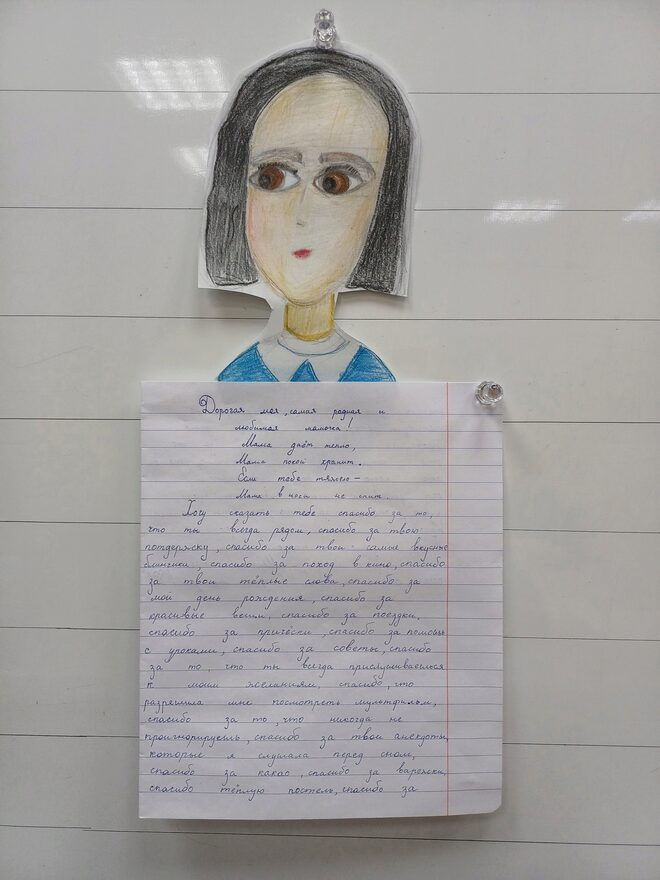 Дорогая моя, самая родная и
любимая мамочка!
Мама даёт тепло,
Мама покой хранит.
Если тебе тяжело –
Мама в ночи не спит.
Хочу сказать тебе спасибо за то,
что ты всегда рядом, спасибо за твою
потдержку, спасибо за твои самые вкусные
блинчики, спасибо за поход в кино, спасибо
за твои тёплые слова, спасибо за
мой день рождения, спасибо за
красивые вещи, спасибо за поездки,
спасибо за причёски, спасибо за помощь
с уроками, спасибо за советы, спасибо
за то, что ты всегда прислушиваешься
к моим желаниям, спасибо, что
разрешила мне посмотреть мультфильм,
спасибо за то, что никогда не
проигнорируешь, спасибо за твои анекдоты,
которые я слушала перед сном,
спасибо за какао, спасибо за варежки,
спасибо тёплую постель, спасибо за